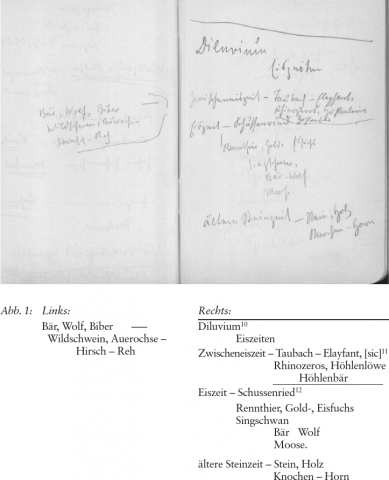 Bär, Wolf, Biber —
Wildschwein, Auerochse –
Hirsch – Reh
Diluvium
Eiszeiten
Zwischeneiszeit – Taubach – Elayfant,
Rhinozeros, Höhlenlöwe
Höhlenbär
Eiszeit – Schussenried
Rennthier, Gold-, Eisfuchs
Singschwan,
Bär – Wolf
Moose.
ältere Steinzeit – Stein, Holz
Knochen – Horn
Abb. 1: Links:
Bär, Wolf, Biber —
Wildschwein, Auerochse –
Hirsch – Reh
Rechts:
Diluvium¹⁰
Eiszeiten
Zwischeneiszeit – Taubach – Elayfant, [sic]¹¹
Rhinozeros, Höhlenlöwe
Höhlenbär
Eiszeit – Schussenried¹²
Rennthier, Gold-, Eisfuchs
Singschwan
Bär Wolf
Moose.
ältere Steinzeit – Stein, Holz
Knochen – Horn